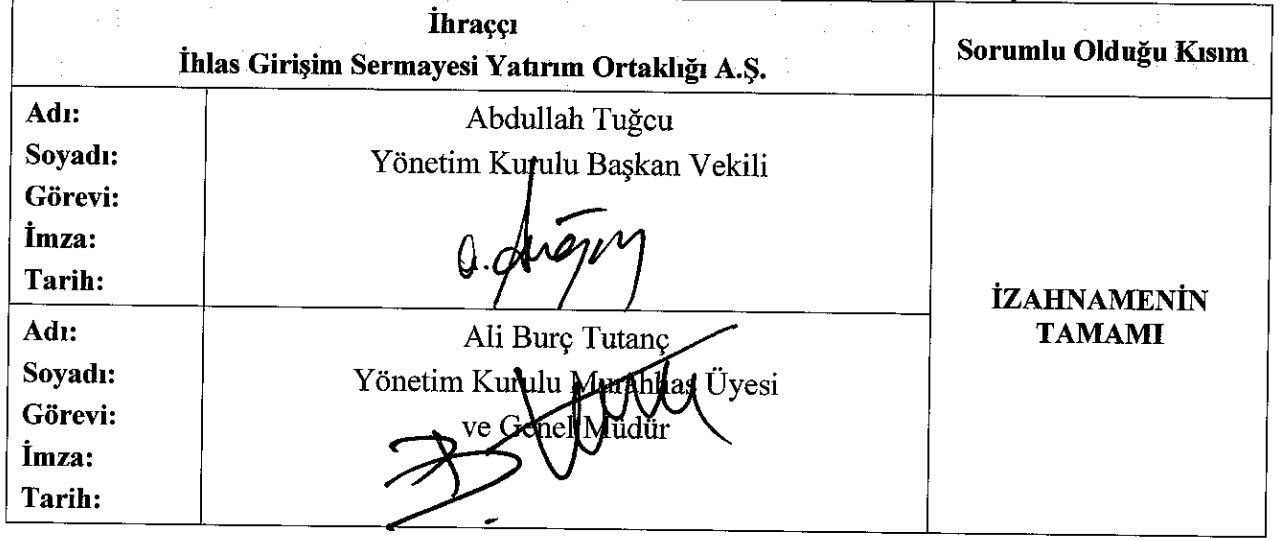 İhraççı
İhlas Girişim Sermayesi Yatırım Ortaklığı A.Ş.
Sorumlu Olduğu Kısım
Adı:
Soyadı:
Görevi:
İmza:
Tarih:
Abdullah Tuğcu
Yönetim Kurulu Başkan Vekili
Adı:
Soyadı:
Görevi:
İmza:
Tarih:
Ali Burç Tutanç
Yönetim Kurulu Murahhas Üyesi
ve Genel Müdür
İZAHNAMENİN
TAMAMI